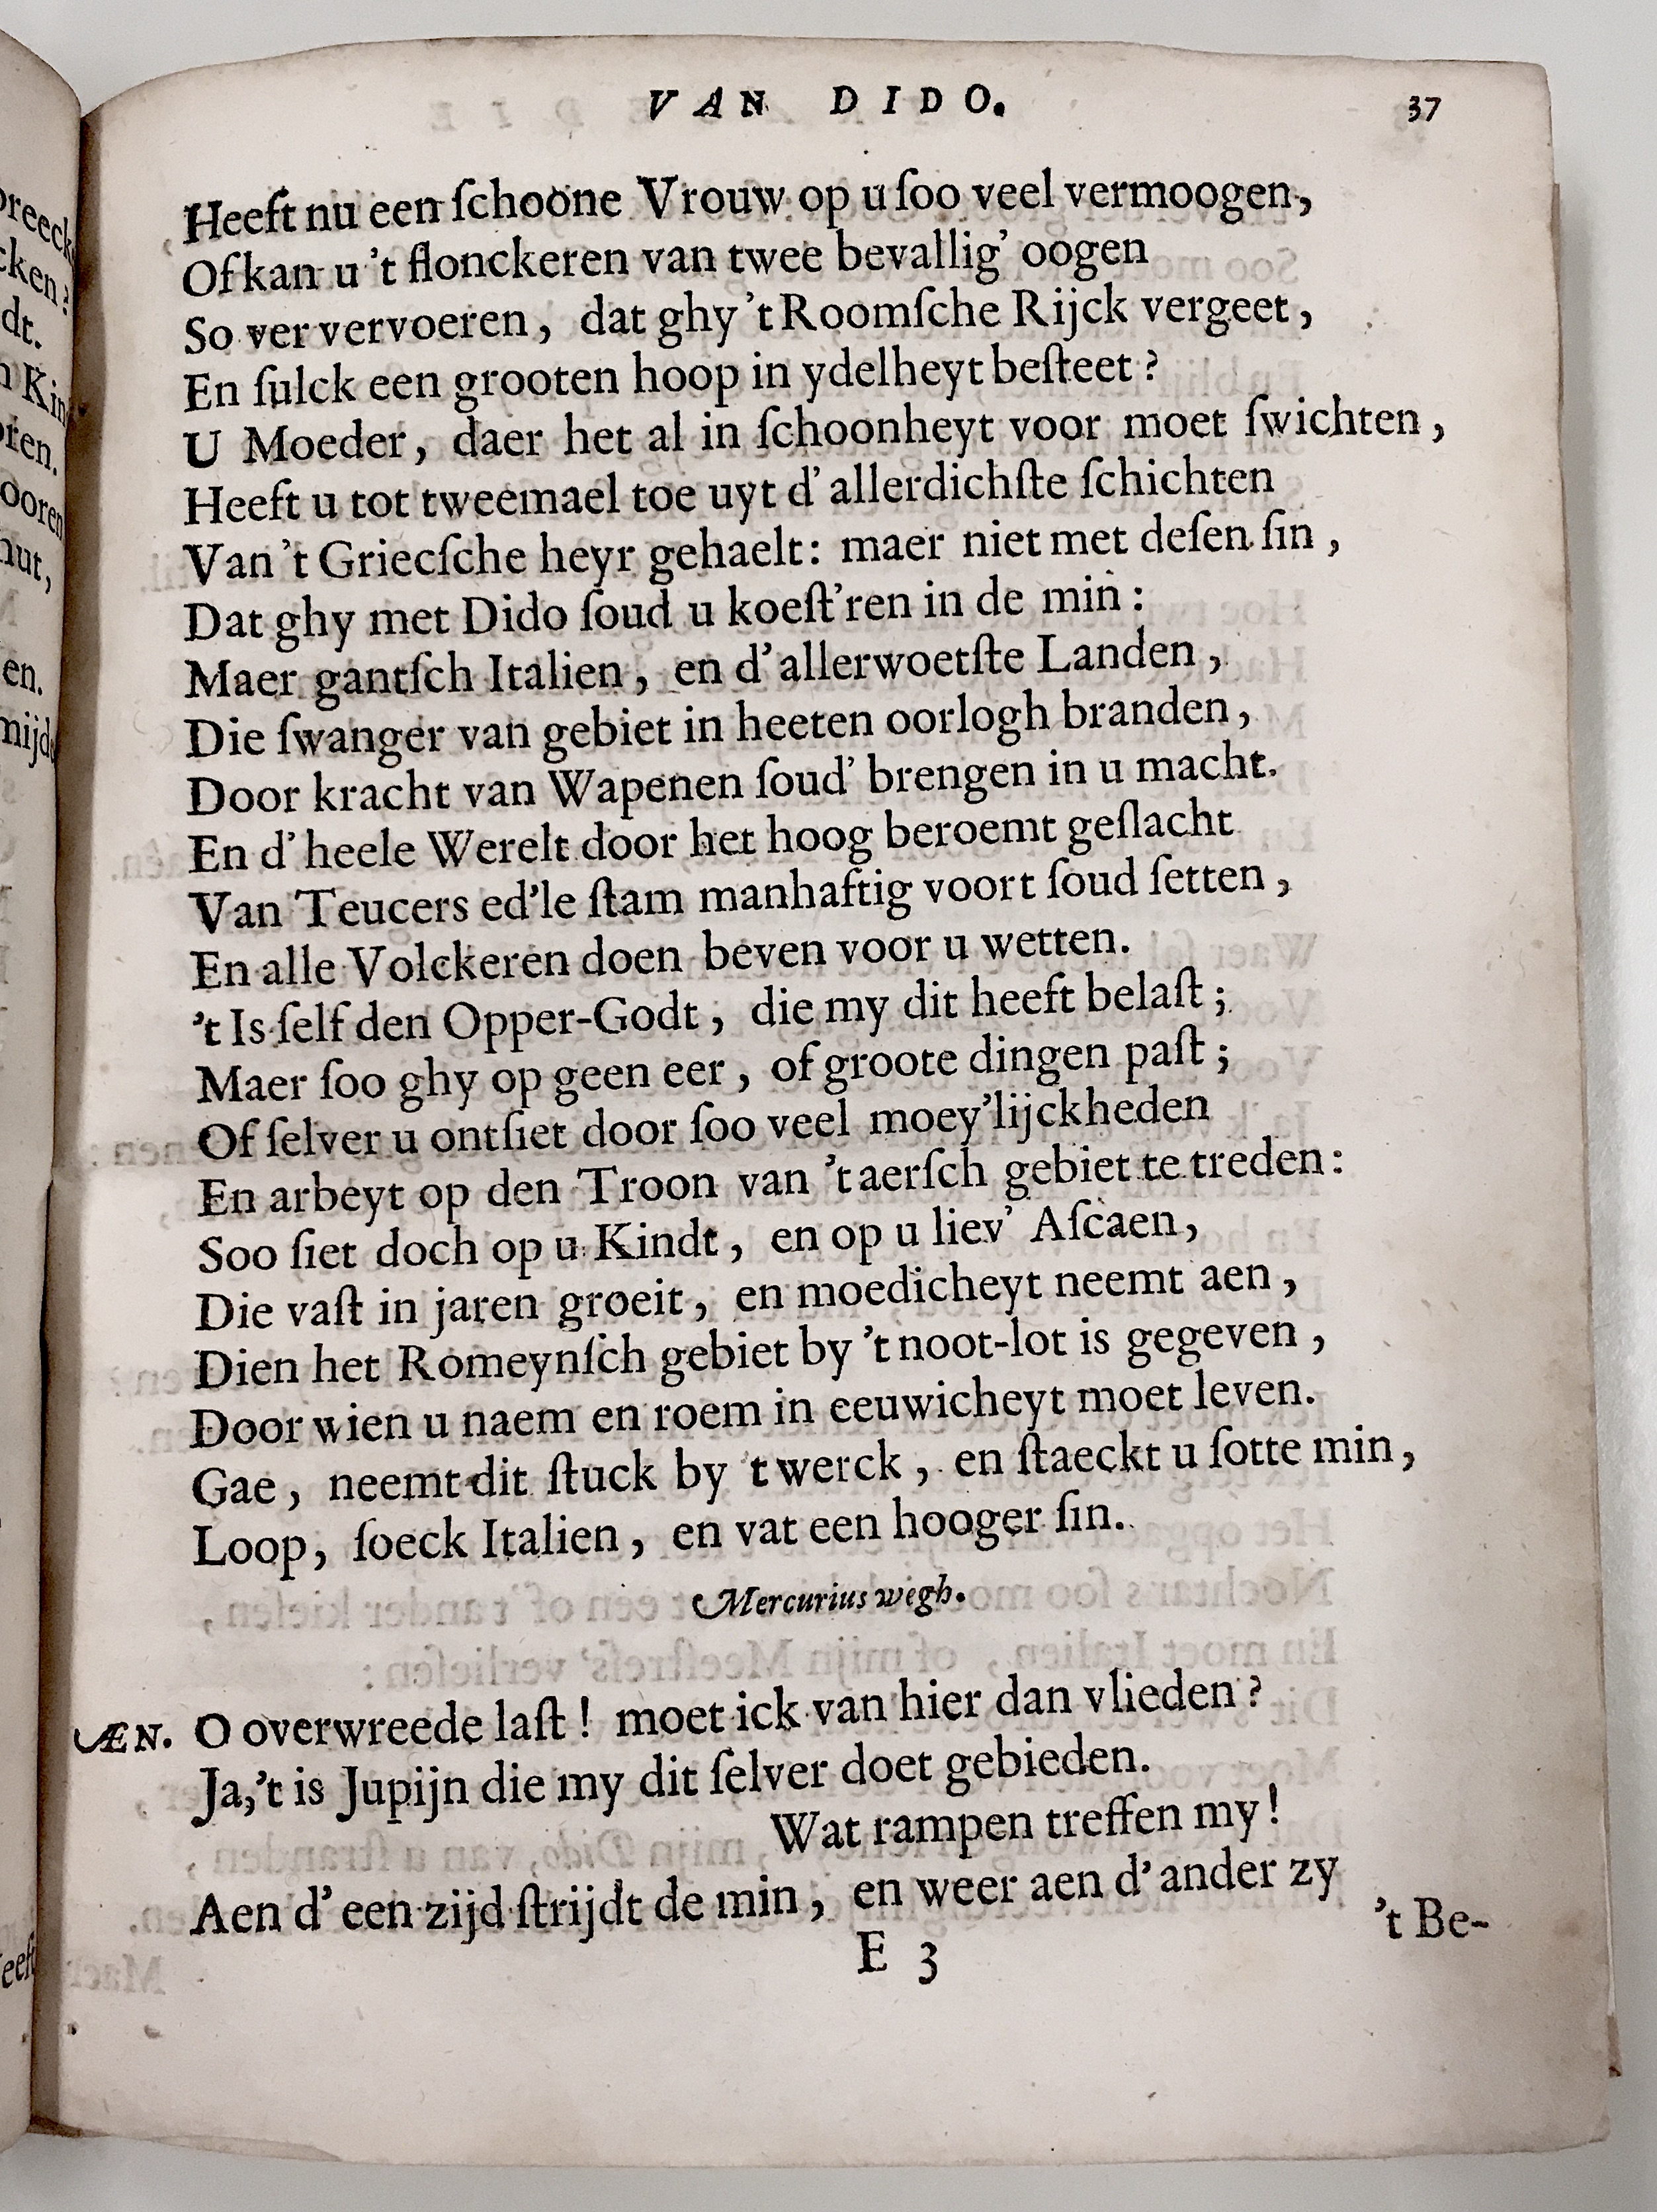 VAN DIDO.
37
Heeft nu een ſchoone Vrouw op u ſoo veel vermoogen,
Of kan u 't flonckeren van twee bevallig' oogen
So ver vervoeren, dat ghy 't Roomſche Rijck vergeet,
En ſulck een grooten hoop in ydelheyt beſteet?
U Moeder, daer het al in ſchoonheyt voor moet ſwichten,
Heeft u tot tweemael toe uyt d' allerdichſte ſchichten
Van 't Griecſche heyr gehaelt: maer niet met deſen ſin,
Dat ghy met Dido ſoud u koeſt'ren in de min:
Maer gantſch Italien, en d' allerwoetſte Landen,
Die ſwanger van gebiet in heeten oorlogh branden,
Door kracht van Wapenen ſoud' brengen in u macht.
En d' heele Werelt door het hoog beroemt geſlacht
Van Teucers ed'le ſtam manhaftig voort ſoud ſetten,
En alle Volckeren doen beven voor u wetten.
't Is ſelf den Opper-Godt, die my dit heeft belaſt;
Maer ſoo ghy op geen eer, of groote dingen paſt;
Of ſelver u ontſiet door ſoo veel moey'lijckheden
En arbeyt op den Troon van 't aerſch gebiet te treden:
Soo ſiet doch op u Kindt, en op u liev' Aſcaen,
Die vaſt in jaren groeit, en moedicheyt neemt aen,
Dien het Romeynſch gebiet by 't noot-lot is gegeven,
Door wien u naem en roem in eeuwicheyt moet leven.
Gae, neemt dit ſtuck by 't werck, en ſtaeckt u ſotte min,
Loop, ſoeck Italien, en vat een hooger ſin.
Mercurius wegh.
ÆN. O overwreede laſt! moet ick van hier dan vlieden?
Ja, 't is Jupijn die my dit ſelver doet gebieden.
Wat rampen treffen my!
Aen d' een zijd ſtrijdt de min, en weer aen d' ander zy
't Be-
E 3